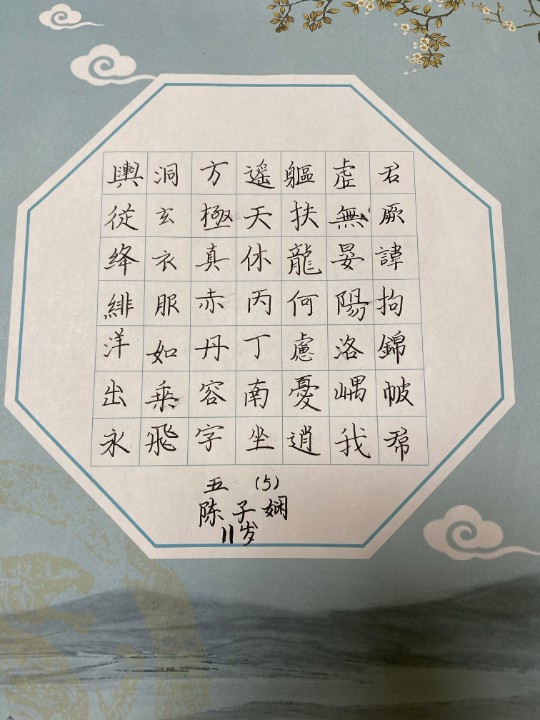 君厥諱拘錦帔帬
虛無晏陽洛嵎我
軀扶龍何慮憂逍
遙天休丙丁南坐
方極真赤丹容字
洞玄衣服如乘飛
輿從絳緋洋出永
五 (5)
陈子娴
11岁